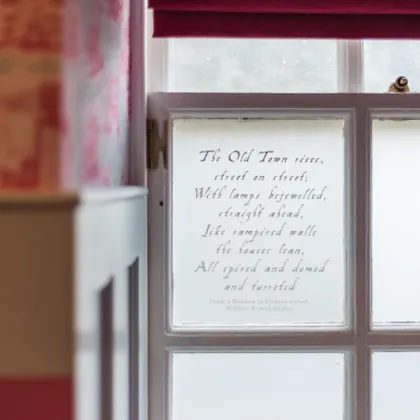 The Old Town rises,
street on street;
With lamps bejewelled,
straight ahead,
Like rampired walls
the houses lean,
All spired and domed
and turreted
From a Window in Princes Street
William Ernest Henley